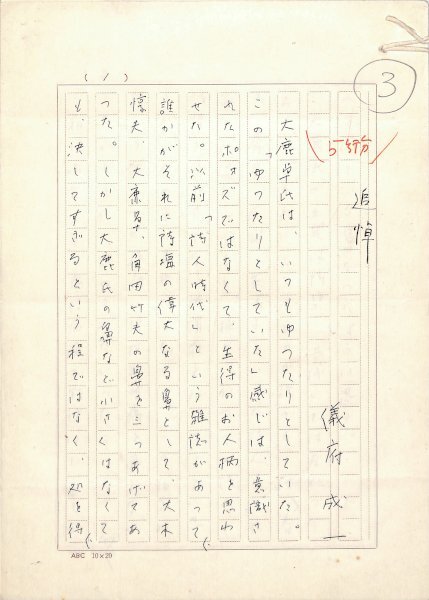 (1)
3
(5分)
追悼
儀府成一
大鹿卓氏は、いつもゆつたりとしていた。
この「ゆつたりとしていた」感じは、意識さ
れたポオズではなくて、生得のお人柄を思わ
せた。以前「詩人時代」という雑誌があつて、
誰かがそれに詩壇の偉大なる鼻として、大木
惇夫、大鹿卓、角田竹夫の鼻を三つあげてあ
つた。しかし大鹿氏の鼻など小さくはなくて
も、決してすぎるという程ではなく、処を得
ABC 10×20